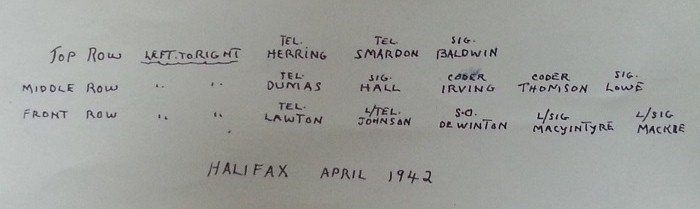 TEL. TEL SIG.
TOP ROW LEFT.TO RIGHT HERRING SMARDON BALDWIN
TEL. SIG. CODER CODER SIG.
MIDDLE ROW " " DUMAS HALL IRVING THOMSON LOWE
TEL. L/TEL. S.O. L/SIG L/SIG
FRONT ROW " " LAWTON JOHNSON DE WINTON MACYINTYRE MACKIE
HALIFAX APRIL 1942